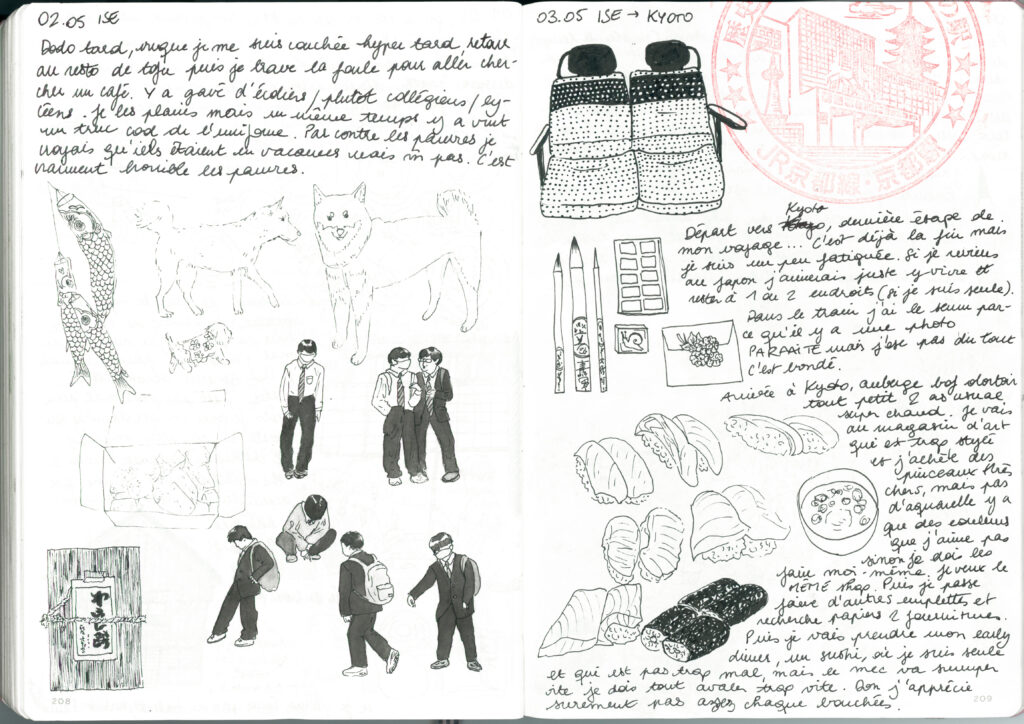 02.05 ISE
Dodo tard, vuque je me suis couchée hyper tard, retour
au resto de tofu puis je brave la foule pour aller cher-
cher un café. Y a gavé d'écoliers / plutôt collégiens / ly-
céens. Je les plains mais en même temps y a vmt
un truc cool de l'uniforme. Par contre les pauvres je
croyais qu'iels étaient en vacances mais m pas. C'est
vraiment horrible les pauvres.
208
03.05 ISE → KYOTO
JR京都線・京都駅
Kyoto
Départ vers, dernière étape de
mon voyage... C'est déjà la fin mais
je suis un peu fatiguée. Si je reviens
au Japon j'aimerais juste y vivre et
rester à 1 ou 2 endroits (si je suis seule).
Dans le train j'ai le seum par-
ce qu'il y a une photo
PARFAITE mais j'ose pas du tout
c'est bondé.
Arrivée à Kyoto, auberge bof dortoir
tout petit & as usual
super chaud. Je vais
au magasin d'art
qui est trop stylé
et j'achète des
pinceaux très
chers, mais pas
d'aquarelle y a
que des couleurs
que j'aime pas
sinon je dois les
faire moi-même. Je veux le
MÊME shop. Puis je passe
faire d'autres emplettes et
recherche papiers & fournitures.
Puis je vais prendre mon early
dinner, un sushi, où je suis seule
et qui est pas trop mal, mais le mec va suuuper
vite je dois tout avaler trop vite. Bon j'apprécie
surement pas assez chaque bouchées.
209